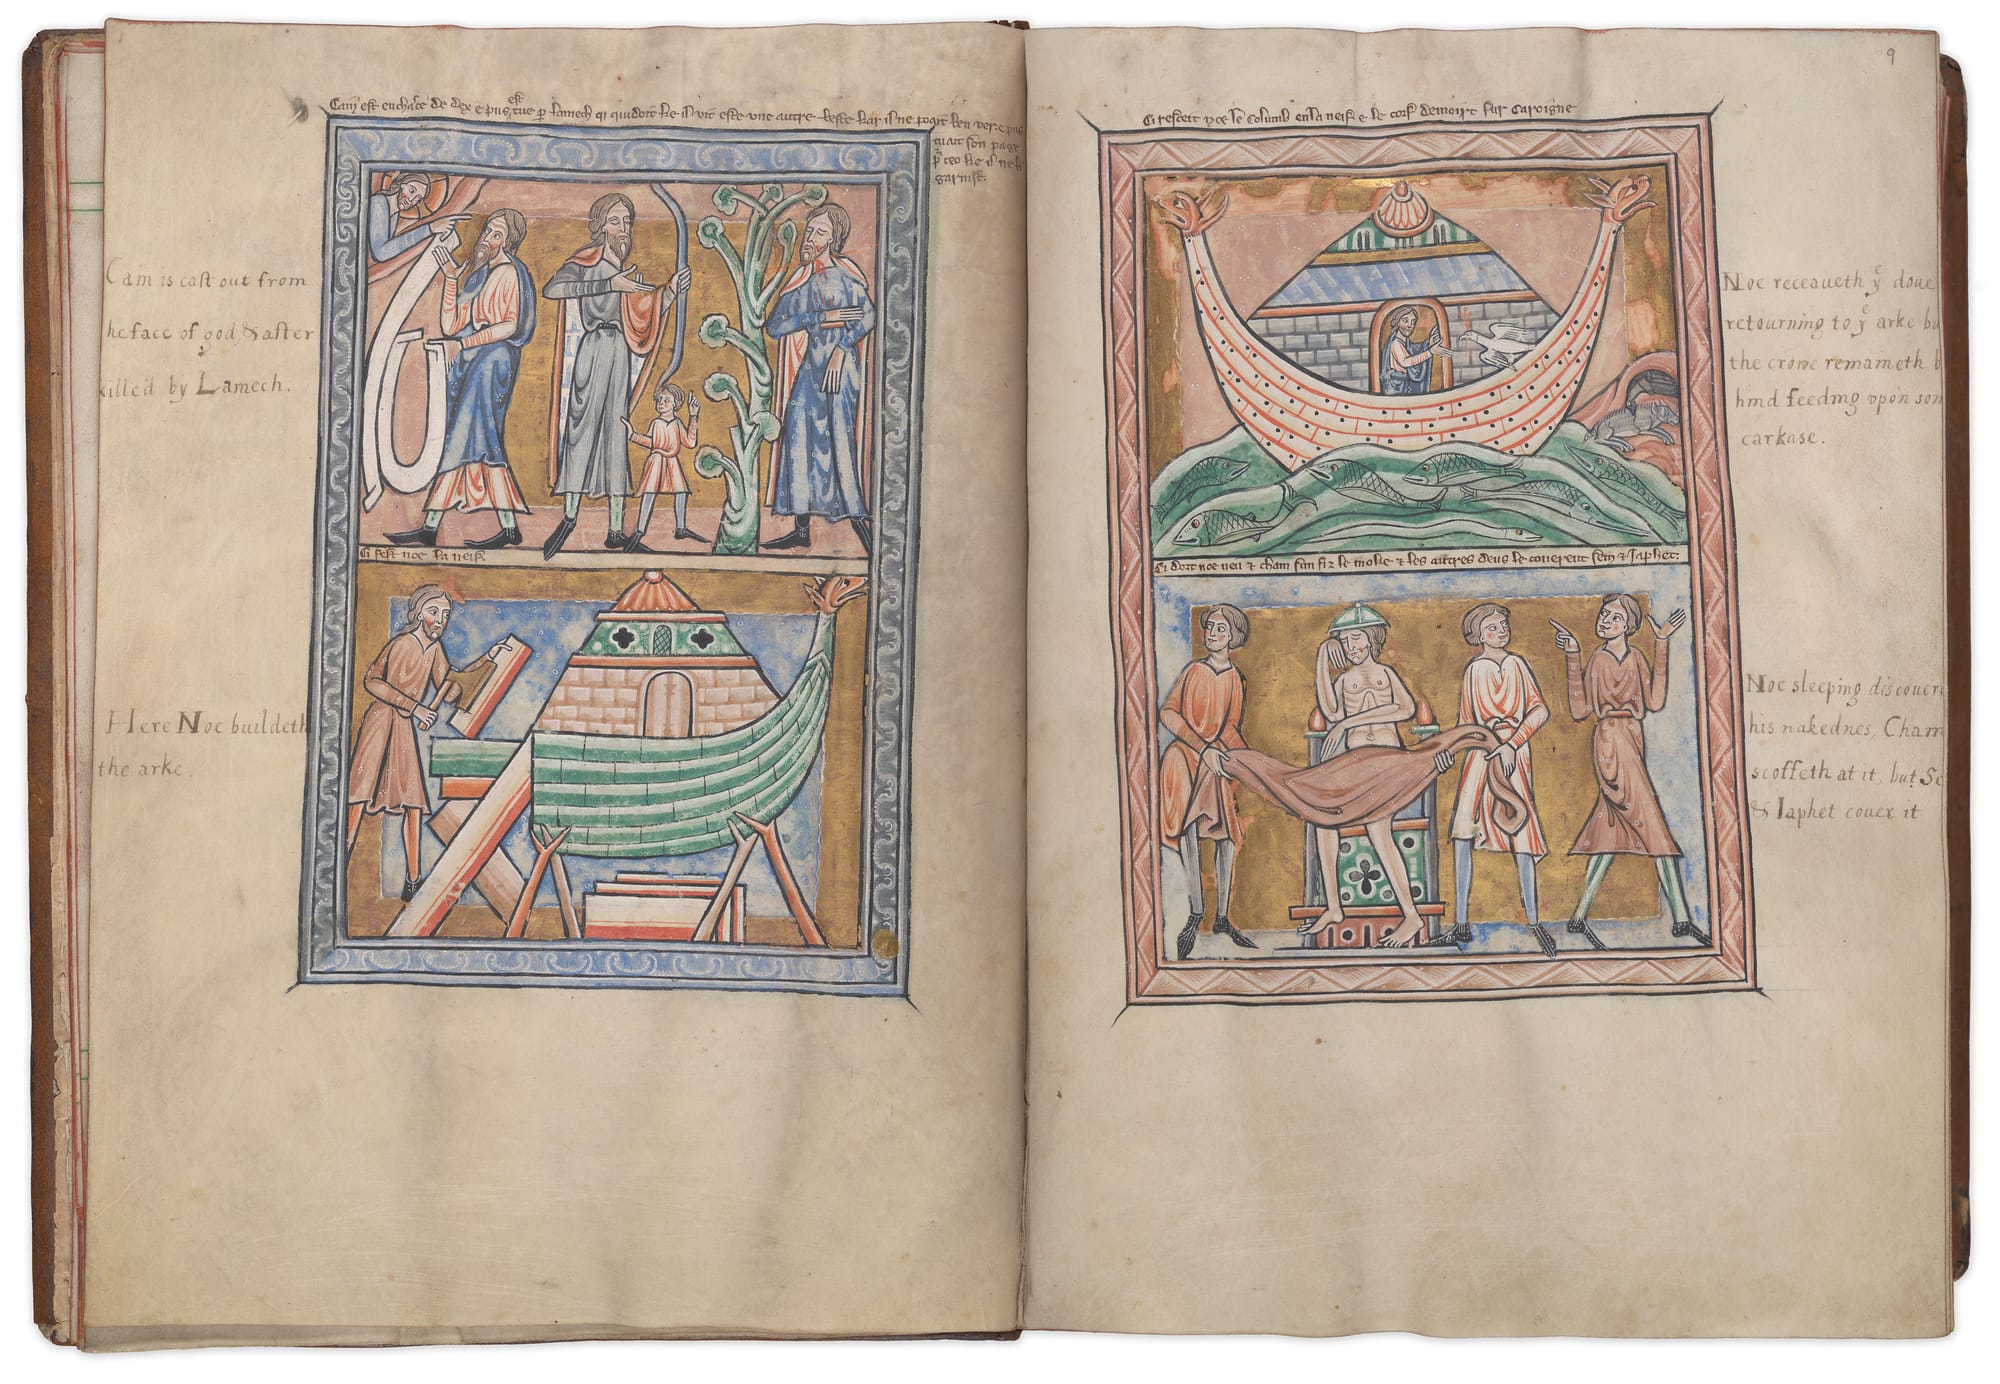 Cain est enchace de dex e puis
est
tue p̄ lamech qi quidoit ke il vit este une autre beste kar il ne poeit ben vere e puis
tuait son page
p̄ ceo ke il ne le
garnist.
Cain is cast out from
he face of god & after
killed by Lamech.
Ci fest noe la neif.
Here Noe buildeth
the arke.
9
Ci resceit noe le columb en la neif e le corf demoirt sur caroigne
Noe receaueth yᵉ doue
retourning to yᵉ arke bu
the crowe remaineth b
hind feeding vpon som
carkase.
Ci dort noe neu & cham sun fiz le moke & les autres deus le couerent sem & Japhet.
Noe sleeping discouere
his nakednes, Cham
scoffeth at it, but Se
& Iaphet couer it